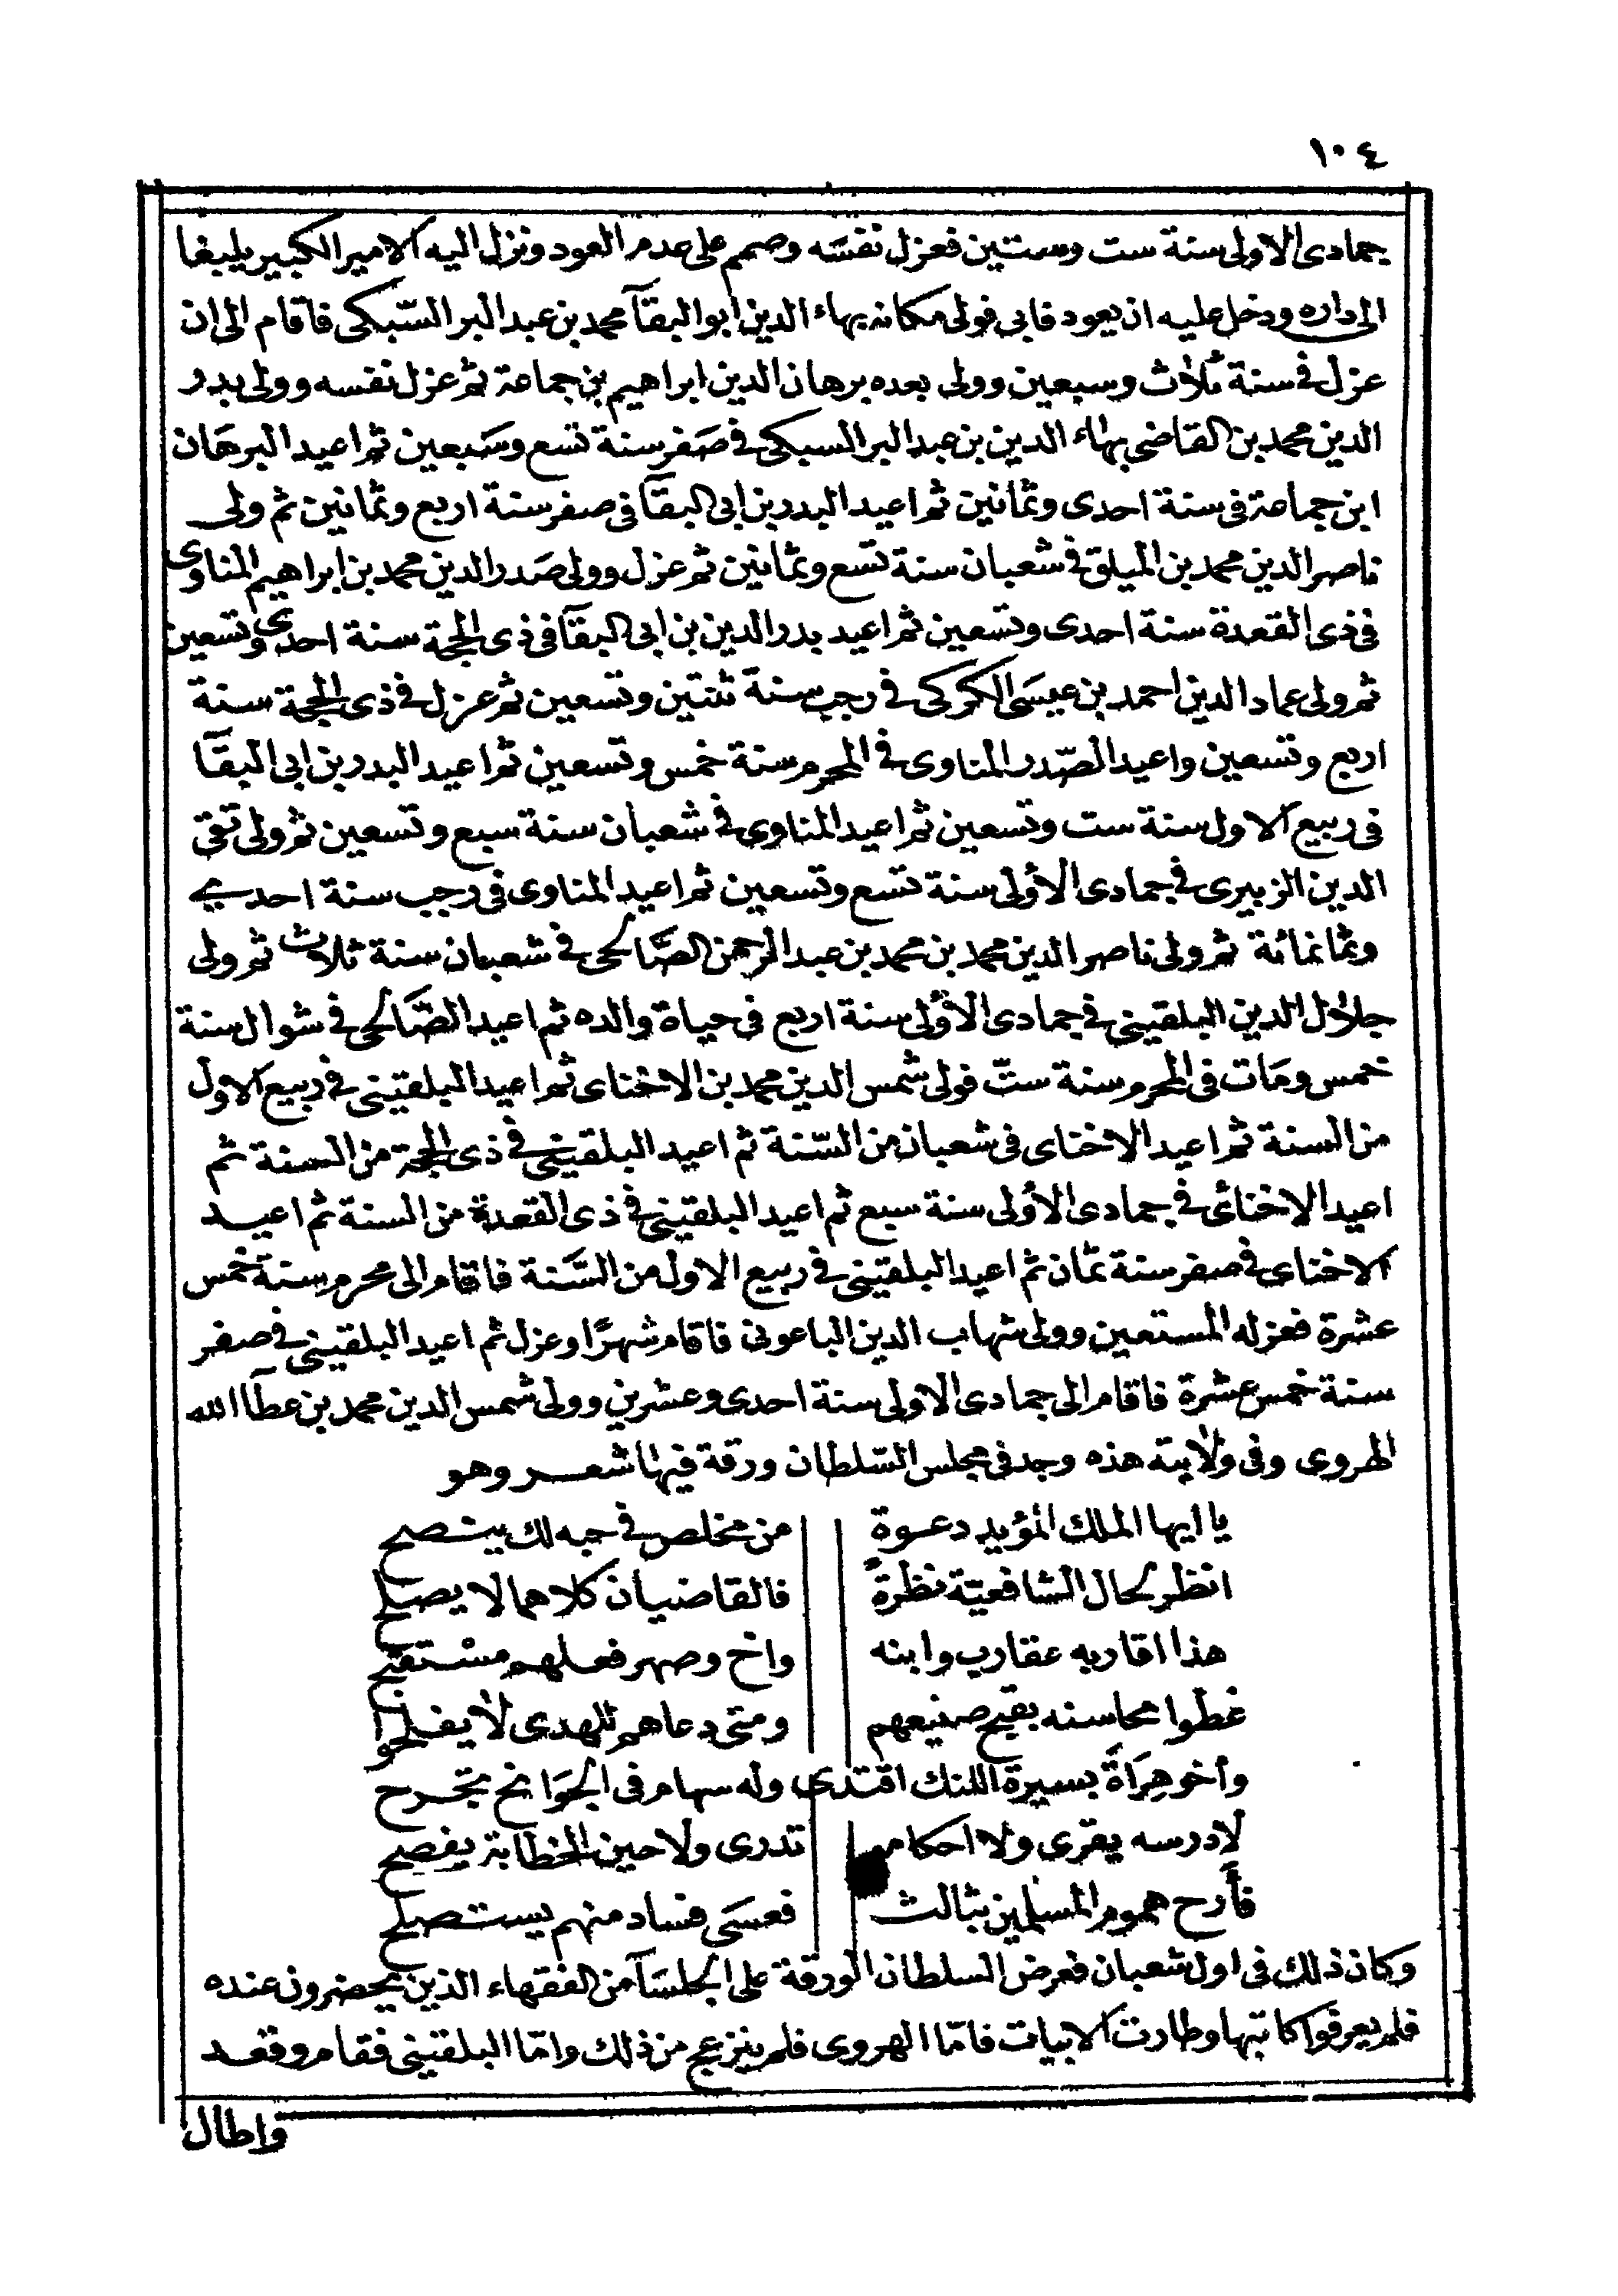 ١٠٤
جمادى الاولى سنة ست وستين فعزل نفسَه وصمم على عدم العود ونزل اليه الامير الكبير يلبغا
الى داره ودخل عليه ان يعود فابى فولى مكانه بهاء الدين ابو البقآ محمد بن عبد البر السّبكى فاقام الى ان
عزل فى سنة ثلاث وسبعين وولى بعده برهان الدين ابراهيم بن جماعة ثم عزل نفسه وولى بدر
الدين محمد بن القاضى بهاء الدين بن عبد البر السبكى فى صَفر سنة تسع وسَبعين ثم اعيد البرهَان
ابن جماعة فى سنة احدى وثمانين ثم اعيد البدر بن ابى البقآ فى صفر سنة اربع وثمانين ثم ولى
ناصر الدين محمد بن الميلق فى شعبان سنة تسع وثمانين ثم عزل وولى صَدر الدين محمد بن ابراهيم المناوى
فى ذى القعدة سنة احدى وتسعين ثم اعيد بدر الدين بن ابى البقآ فى ذى الحجة سنة احدى وتسعين
ثم ولى عماد الدين احمد بن عيسَى الكركى فى رجب سنة ثنتين وتسعين ثم عزل فى ذى الحجة سنة
اربع وتسعين واعيد الصّدر المناوى فى المحرم سنة خمس وتسعين ثم اعيد البدر بن ابى البقآ
فى ربيع الاول سنة ست وتسعين ثم اعيد المناوى فى شعبان سنة سبع وتسعين ثم ولى تقى
الدين الزبيرى فى جمادى الأولى سنة تسع وتسعين ثم اعيد المناوى فى رجب سنة احدى
وثمانمائة ثم ولى ناصر الدين محمد بن محمد بن عبد الرحمن الصَّالحى فى شعبان سنة ثلاث ثم ولى
جلال الدين البلقينى فى جمادى الأولى سنة اربع فى حياة والده ثم اعيد الصَّالحى فى شوال سنة
خمس ومَات فى المحرم سنة ستّ فولى شمس الدين محمد بن الاخناى ثم اعيد البلقينى فى ربيع الاول
من السنة ثم اعيد الاخناى فى شعبان من السّنة ثم اعيد البلقينى فى ذى الحجة من السنة ثم
اعيد الاخنائى فى جمادى الأولى سنة سبع ثم اعيد البلقينى فى ذى القعدة من السنة ثم اعيد
الاخناى فى صفر سنة ثمان ثم اعيد البلقينى فى ربيع الاول من السَّنة فاقام الى محرم سنة خمس
عشرة فعزله المستعين وولى شهاب الدين الباعونى فاقام شهرًا وعزل ثم اعيد البلقينى فى صفر
سنة خمس عشرة فاقام الى جمادى الاولى سنة احدى وعشرين وولى شمس الدين محمد بن عطآ الله
الهروى وفى ولايته هذه وجد فى مجلس السّلطان ورقة فيها شعر وهو
يا ايها الملك المؤيد دعوة من مخلص فى حبه لك يتصح
انظر لحال الشافعيّة نظرةً فالقاضيان كلاهما لا يصلح
هذا اقاربه عقارب وابنه واخ وصهر فعلهم مسْتقبح
غطوا محاسنه بقبح صنيعهم ومتى دعاهم للهدى لا يفلحوا
وأخو هِرَاةَ بسيرة اللنك اقتدى وله سهام فى الجوَانح تجرح
لا درسه يقرى ولا احكامه تدرى ولا حين الخطابة يفصح
فأرح هموم المسلمين بثالث فعسَى فساد منهم يستصلح
وكان ذلك فى اول شعبان فعرض السلطان الورقة على الجلسَآ من الفقهاء الذين يحضرون عنده
فلم يعرفوا كاتبها وطارت الابيات فامّا الهروى فلم ينزعج من ذلك وامّا البلقينى فقام وقعد
واطال